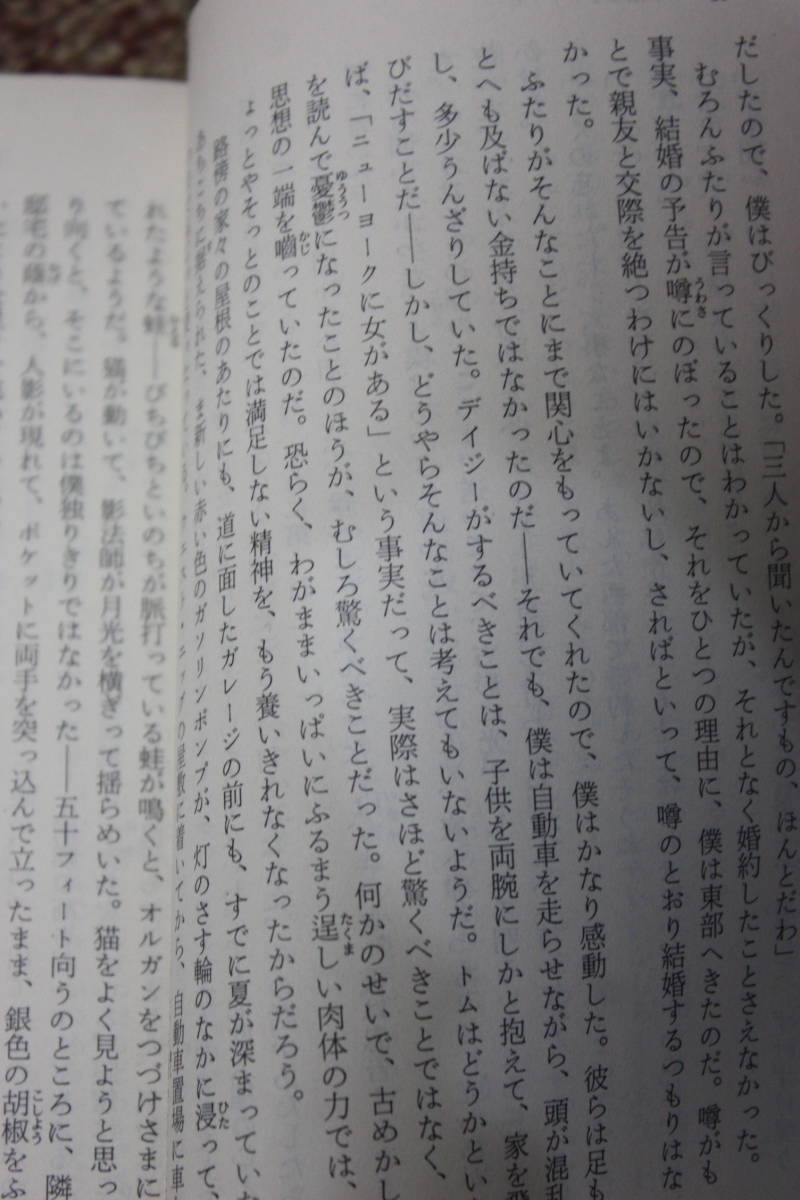 だしたので、僕はびっくりした。「三人から聞いたんですもの、ほんとだわ」
むろんふたりが言っていることはわかっていたが、それとなく婚約したことさえなかった。
事実、結婚の予告が噂にのぼったので、それをひとつの理由に、僕は東部へきたのだ。噂がも
とで親友と交際を絶つわけにはいかないし、さればといって、噂のとおり結婚するつもりはな
かった。
ふたりがそんなことにまで関心をもっていてくれたので、僕はかなり感動した。彼らは足も
とへも及ばない金持ちではなかったのだ――それでも、僕は自動車を走らせながら、頭が混乱
し、多少うんざりしていた。デイジーがするべきことは、子供を両腕にしかと抱えて、家を飛
びだすことだ――しかし、どうやらそんなことは考えてもいないようだ。トムはどうかとい
ば、「ニューヨークに女がある」という事実だって、実際はさほど驚くべきことではなく、
を読んで憂鬱になったことのほうが、むしろ驚くべきことだった。何かのせいで、古めかし
思想の一端を嚙っていたのだ。恐らく、わがままいっぱいにふるまう逞しい肉体の力では、
ょっとやそっとのことでは満足しない精神を、もう養いきれなくなったからだろう。
路傍の家々の屋根のあたりにも、道に面したガレージの前にも、すでに夏が深まってい
あちこちに据えられた、ま新しい赤い色のガソリンポンプが、灯のさす輪のなかに浸って、
の屋敷に着いてから、自動車置場に車
れたような蛙――ぴちぴちといのちが脈打っている蛙が鳴くと、オルガンをつづけさまに
ているようだ。猫が動いて、影法師が月光を横ぎって揺らめいた。猫をよく見ようと思っ
り向くと、そこにいるのは僕独りきりではなかった――五十フィート向うのところに、隣
邸宅の蔭から、人影が現れて、ポケットに両手を突っ込んで立ったまま、銀色の胡椒をふ